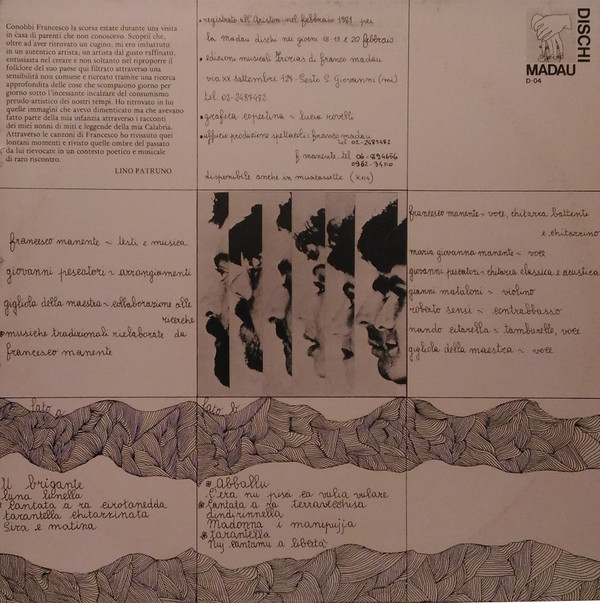 Conobbi Francesco la scorsa estate durante una visita
in casa di parenti che non conoscevo. Scoprii che,
oltre ad aver ritrovato un cugino, mi ero imbattuto
in un autentico artista; un artista dal gusto raffinato,
entusiasta nel creare e non soltanto nel riproporre il
folklore del suo paese qui filtrato attraverso una
sensibilità non comune e ricreato tramite una ricerca
approfondita delle cose che scompaiono giorno per
giorno sotto l'incessante incalzare del consumismo
pseudo-artistico dei nostri tempi. Ho ritrovato in lui
quelle immagini che avevo dimenticato ma che avevano
fatto parte della mia infanzia attraverso i racconti
dei miei nonni di miti e leggende della mia Calabria.
Attraverso le canzoni di Francesco ho rivissuto quei
lontani momenti e rivisto quelle ombre del passato
da lui rievocate in un contesto poetico e musicale
di raro riscontro.
LINO PATRUNO
• registrato all'Ariston nel febbraio 1981 per
la madau dischi nei giorni 18-19 e 20 febbraio
• edizioni musicali Icerias di franco madau
via XX settembre 129 - Sesto S. Giovanni (mi)
tel. 02-2487492
• grafica copertina = lucio rovelli
• ufficio produzione spettacoli: franco madau
tel 02-2487492
f. manente. tel. 06-
0962-
disponibile anche in musicassetta (K04)
DISCHI
MADAU
D-04
francesco manente = testi e musica
giovanni pescatori = arrangiamenti
gigliola della maestra = collaborazione alle
ricerche
• musiche tradizionali rielaborate da
francesco manente
francesco manente = voce, chitarra battente
e chitarrino
maria giovanna manente = voce
giovanni pescatori = chitarra classica e acustica
gianni mataloni = violino
roberto sensi = contrabbasso
nando citarella = tamburello, voce
gigliola della maestra = voce
lato a
U brigante
luna lunella
* Cantata a ra cirotanedda
tarantella chitarrinata
Sira e matina
lato b
* Abballu
C'era nu pisci ca vulia vulare
* Cantata a ra terravecchisa
dindirinnella
Madonna i manipujja
* tarantella
Nuj cantamu a libertà